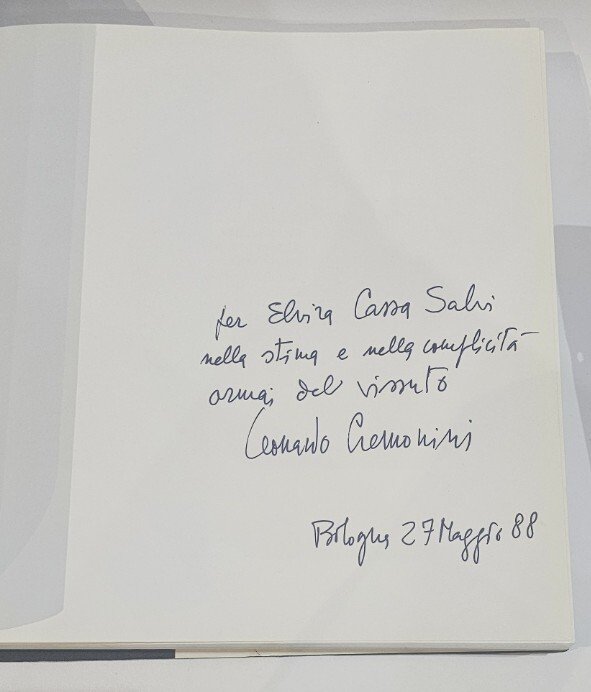 per Elvira Cassa Salvi
nella stima e nella complicità
ormai del vissuto
Leonardo Cremonini
Bologna 27 Maggio 88